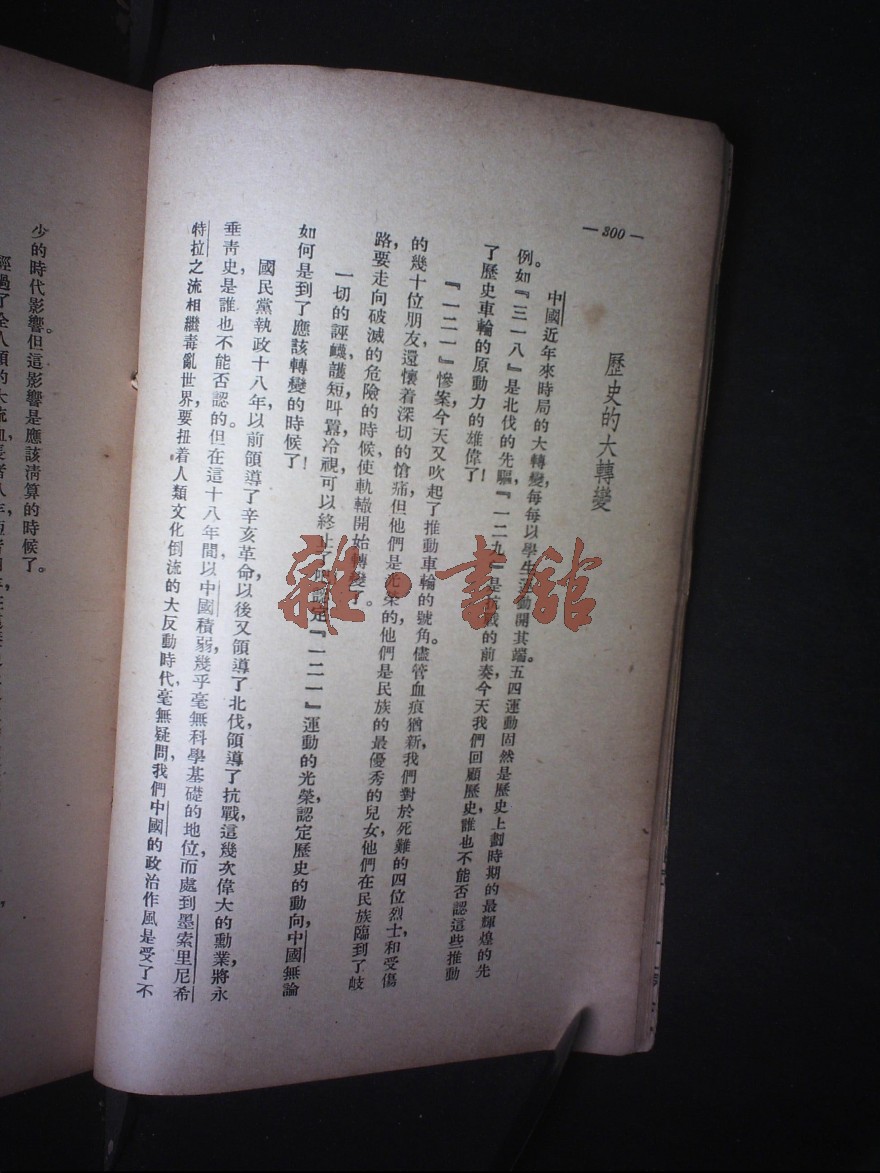 — 300 —
歷史的大轉變
中國近年來時局的大轉變，每每以學生運動開其端。五四運動固然是歷史上劃時期的最輝煌的先
例。例如『三一八』是北伐的先驅，『一二九』是抗戰的前奏，今天我們回顧歷史，誰也不能否認這些推動
了歷史車輪的原動力的雄偉了！
『一二一』慘案，今天又吹起了推動車輪的號角。儘管血痕猶新，我們對於死難的四位烈士和受傷
的幾十位朋友，還懷着深切的愴痛，但他們是光榮的，他們是民族的最優秀的兒女，他們在民族臨到了歧
路，要走向破滅的危險的時候，使軌轍開始轉變了。
一切的誣衊，護短，叫囂，冷視，可以終止了，認定『一二一』運動的光榮，認定歷史的動向，中國無論
如何是到了應該轉變的時候了！
國民黨執政十八年，以前領導了辛亥革命，以後又領導了北伐，領導了抗戰，這幾次偉大的勳業，將永
垂靑史，是誰也不能否認的。但在這十八年間，以中國積弱，幾乎毫無科學基礎的地位，而處到墨索里尼希
特拉之流相繼毒亂世界，要扭着人類文化倒流的大反動時代，毫無疑問，我們中國的政治作風是受了不
少的時代影響。但這影響是應該淸算的時候了。
雜·書舘